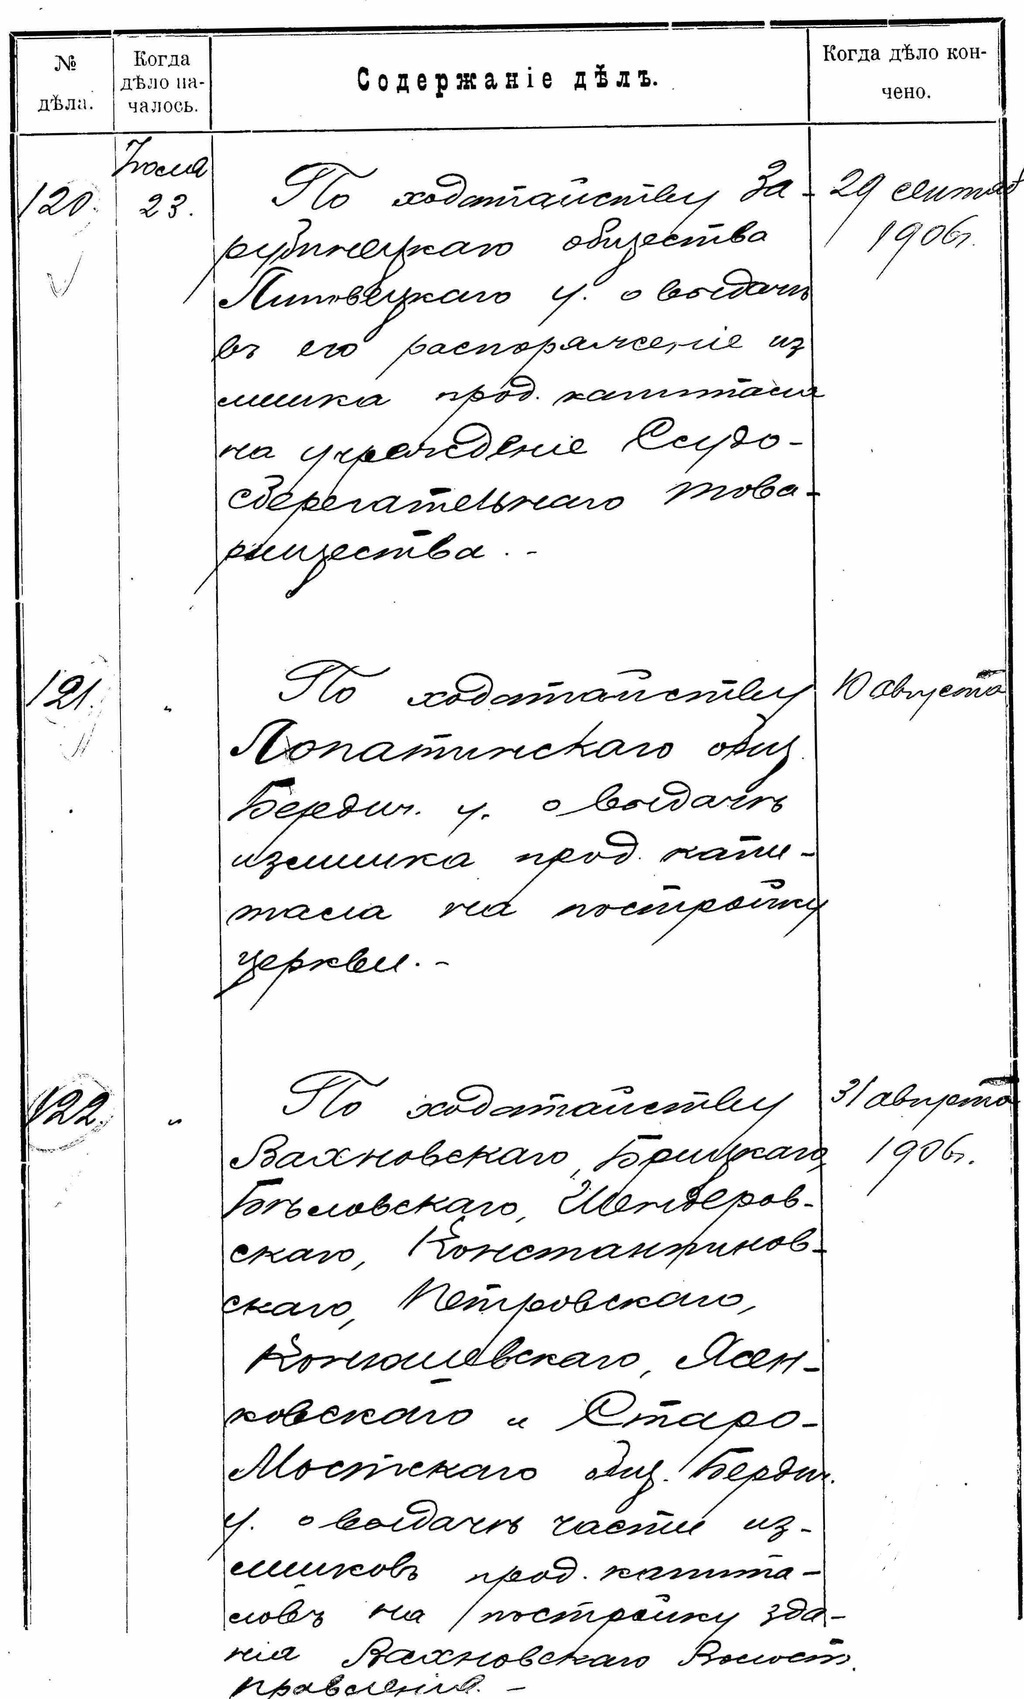 № дѣла.
Когда дѣло на-чалось.
Содержаніе дѣлъ.
Когда дѣло кон-чено.
120.
Іюля
23.
По ходатайству За-
рубинецкаго общества
Липовецкаго у. о выдачѣ
въ его распоряженіе из
лишка прод. капитала
на учрежденіе Ссудо-
сберегательнаго това-
рищества. -
29 сентяб
1906г.
121.
"
По ходатайству
Лопатинскаго общ.
Бердич. у. о выдачѣ
излишка прод. капи-
тала на постройку
церкви. -
10 августа
122.
"
По ходатайству
Вахновскаго, Брицкаго,
Бѣловскаго, Шендеров-
скаго, Константинов-
скаго, Петровскаго,
Конюшевскаго, Ясен-
ковскаго и Старо-
Мостскаго общ. Бердич.
у. о выдачѣ части из-
лишковъ прод. капита-
ловъ на постройку зда-
нія Вахновскаго Волост.
правленія. -
31 августа
1906г.